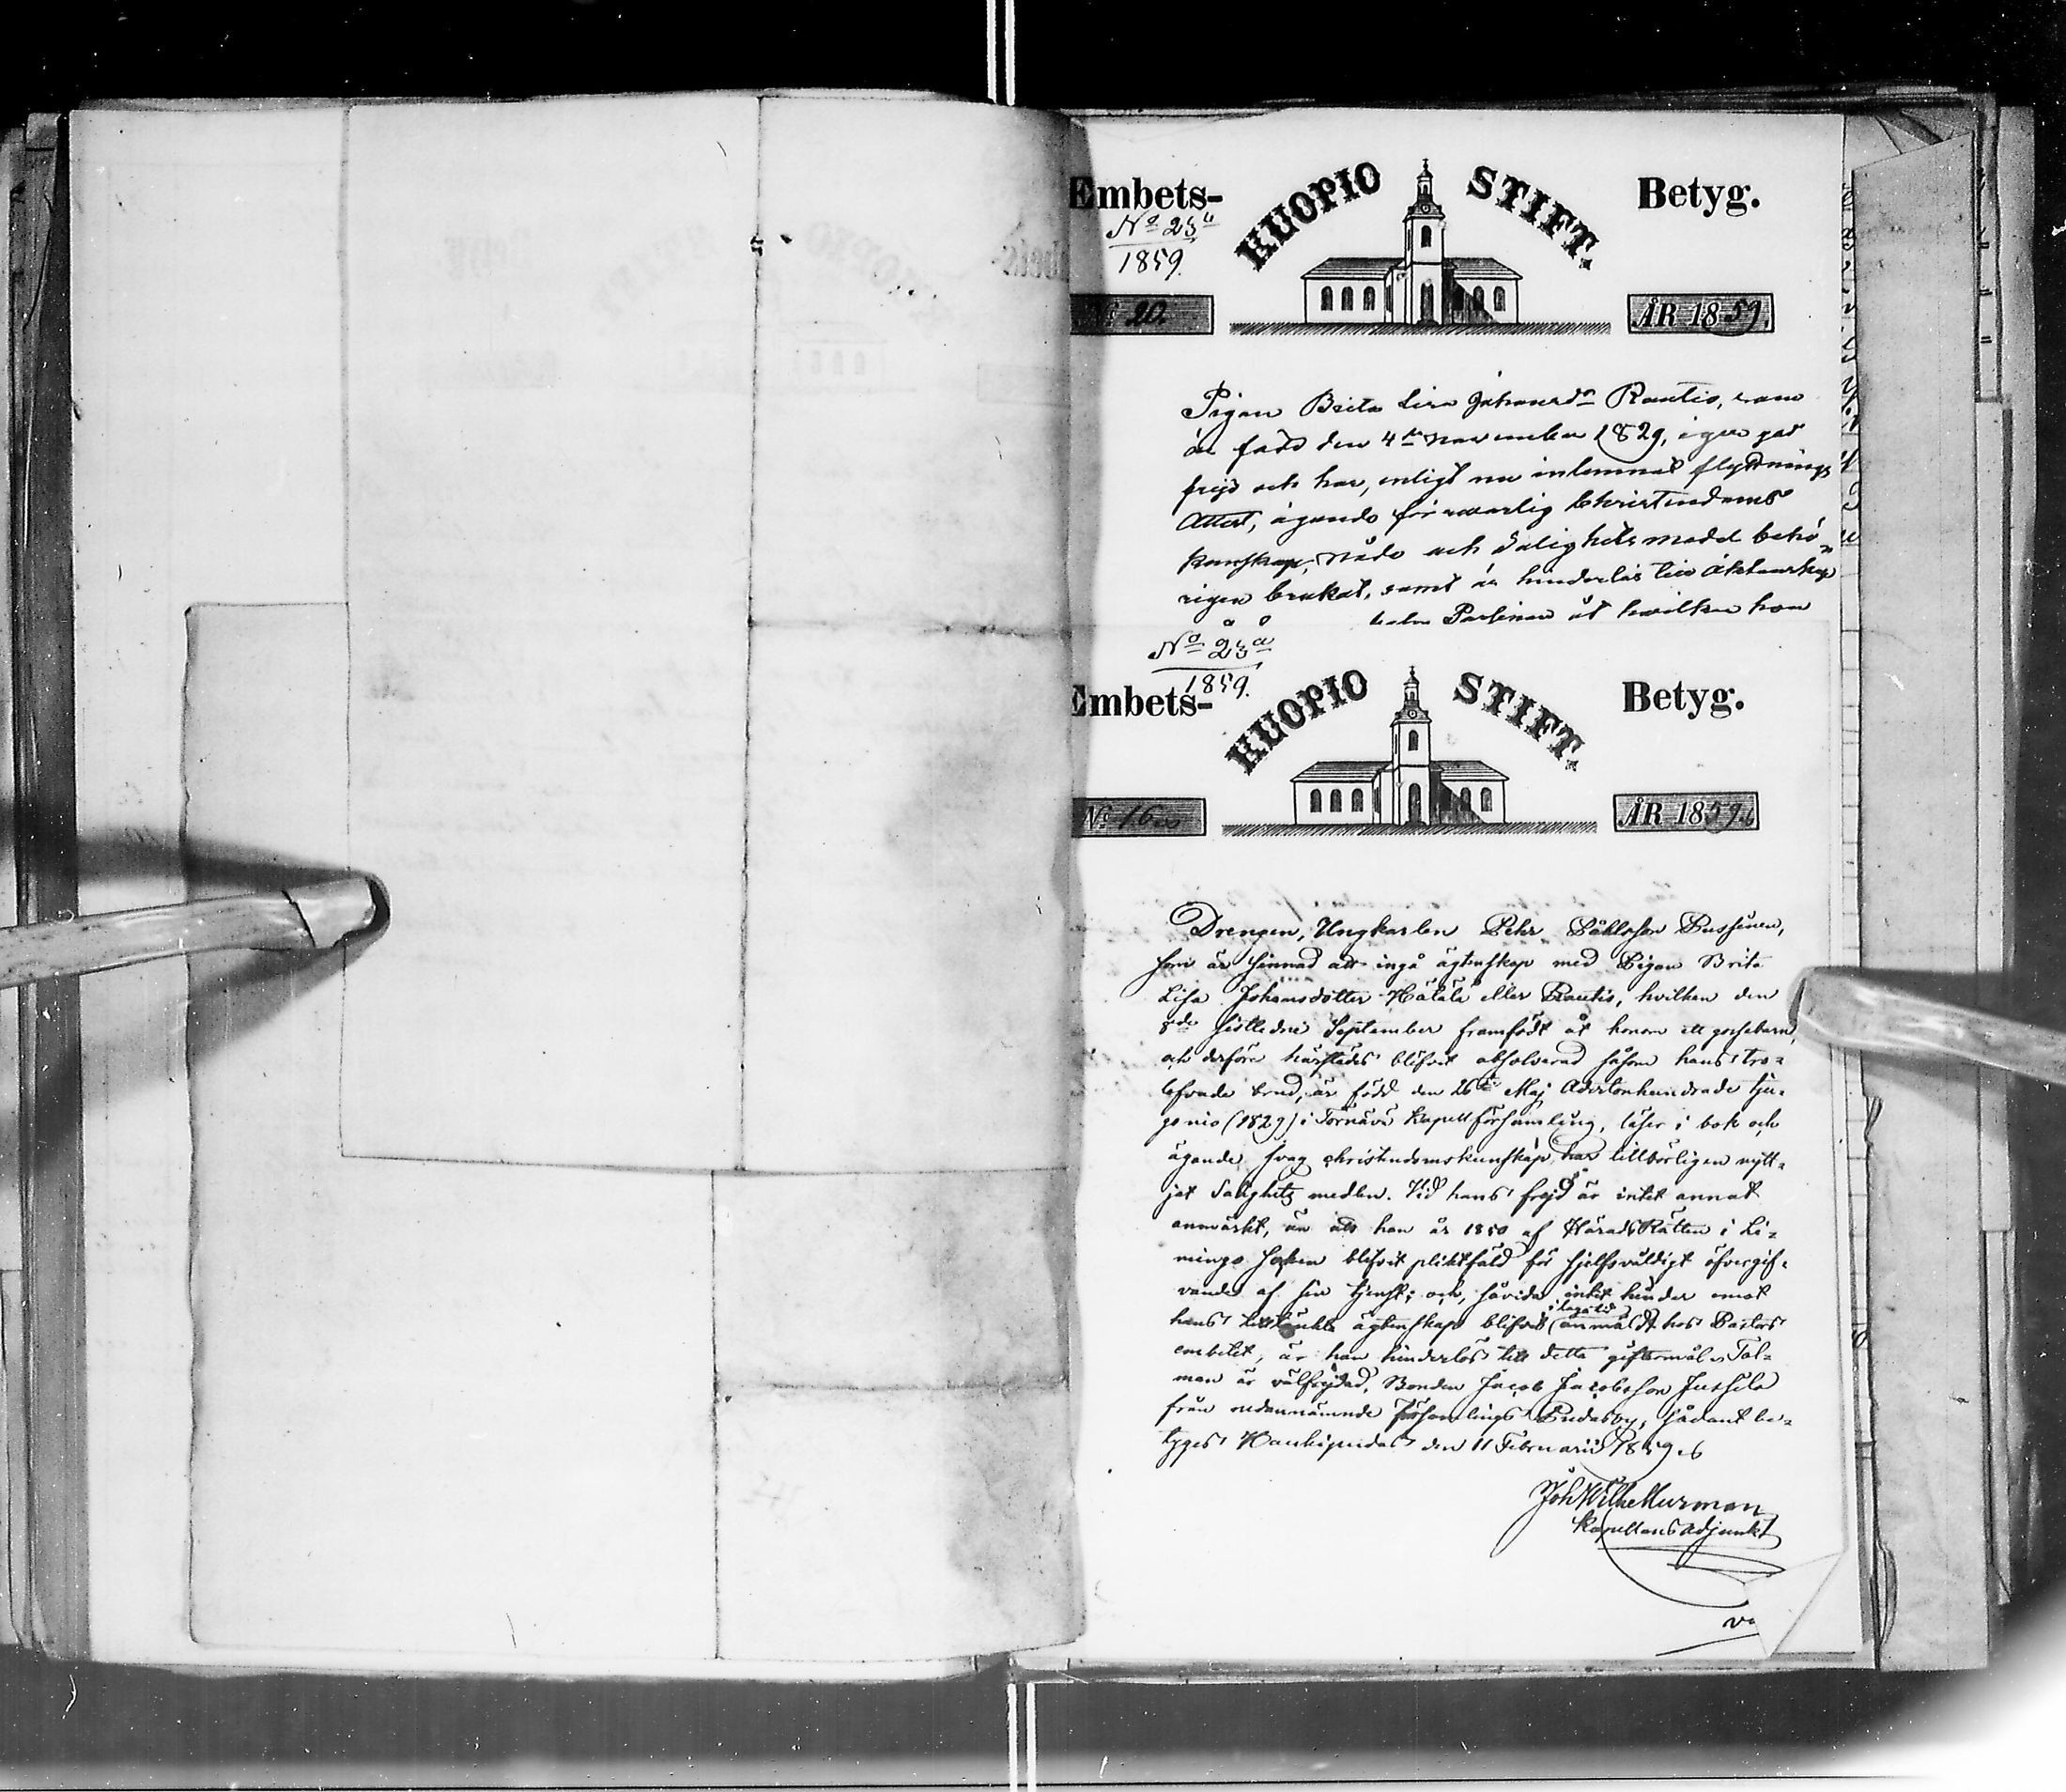 Embets-
KUOPIO STIFT.
Betyg.
No 23
1859.
No 20.
ÅR 1859.
Pigan Brita Lisa Johansdr Rautio, som
är född den 4de november 1829, äger god
frejd och har, enligt nu inlemnat flyttnings
Attest, ägande försvarlig Christendoms
kunskap, nåde och Salighets medel behö-
rigen brukat, samt är hinderlös till äktenskap
åt hvilken hon
No 23a
1859.
Embets-
KUOPIO STIFT.
Betyg.
No 16
ÅR 1859.
Drengen, Ungkarlen Pehr Påhlsson Pussinen,
som är sinnad att ingå ägtenskap med Pigan Brita
Lisa Johansdotter Hälälä eller Rautio, hvilken den
8de sistledne September framfödt åt honom ett gossebarn,
och derföre härstädes blifvit absolverad såsom hans tro-
lofvade brud, är född den 26te Maj Adertonhundrade tju-
gonio (1829) i Tornävä Kapellförsamling, läser i bok och
ägande svag christendomskunskap, har tillbörligen nytt-
jat Salighets medlen. Vid hans frejd är intet annat
anmärkt, än att han år 1850 af HäradsRätten i Li-
mingo Socken blifvit pliktfäld för sjelfsvåldigt öfvergif-
vande af sin tjenst; och, såvida intet hinder emot
hans ägtenskap blifvit i laga tid anmäldt hos Pastors
embetet, är han hinderlös till detta giftermål. Tal-
man är välfrejdad, Bonden Jacob Jacobsson Jussila
från ofvannämnde församlings by, sådant be-
tyges den 11 Februarii 1859.
Joh Wilh Murman
Kapellans adjunkt